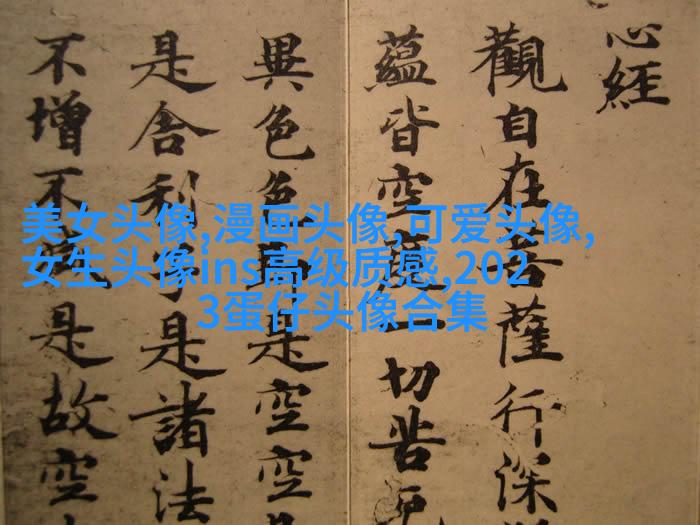 心經
觀自在菩薩行深
蘊皆空度一切苦厄
異色色即是空空
是舍利子是諸法
不增不減是故空
美女头像,漫画头像,可爱头像,
女生头像ins高级质感,202
3蛋仔头像合集